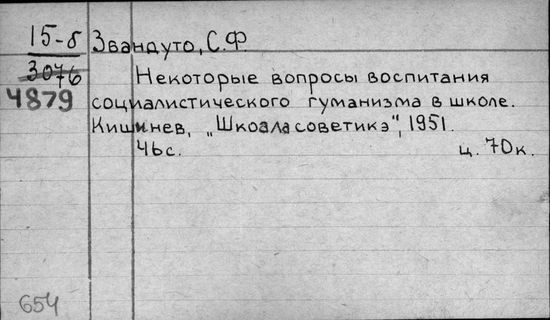 15-б Звандуто, С.Ф
3076
4879
Некоторые вопросы воспитания
социалистического гуманизма в школе.
Кишинев, „Школа советикэ", 1951.
46с. ц. 70к.
654